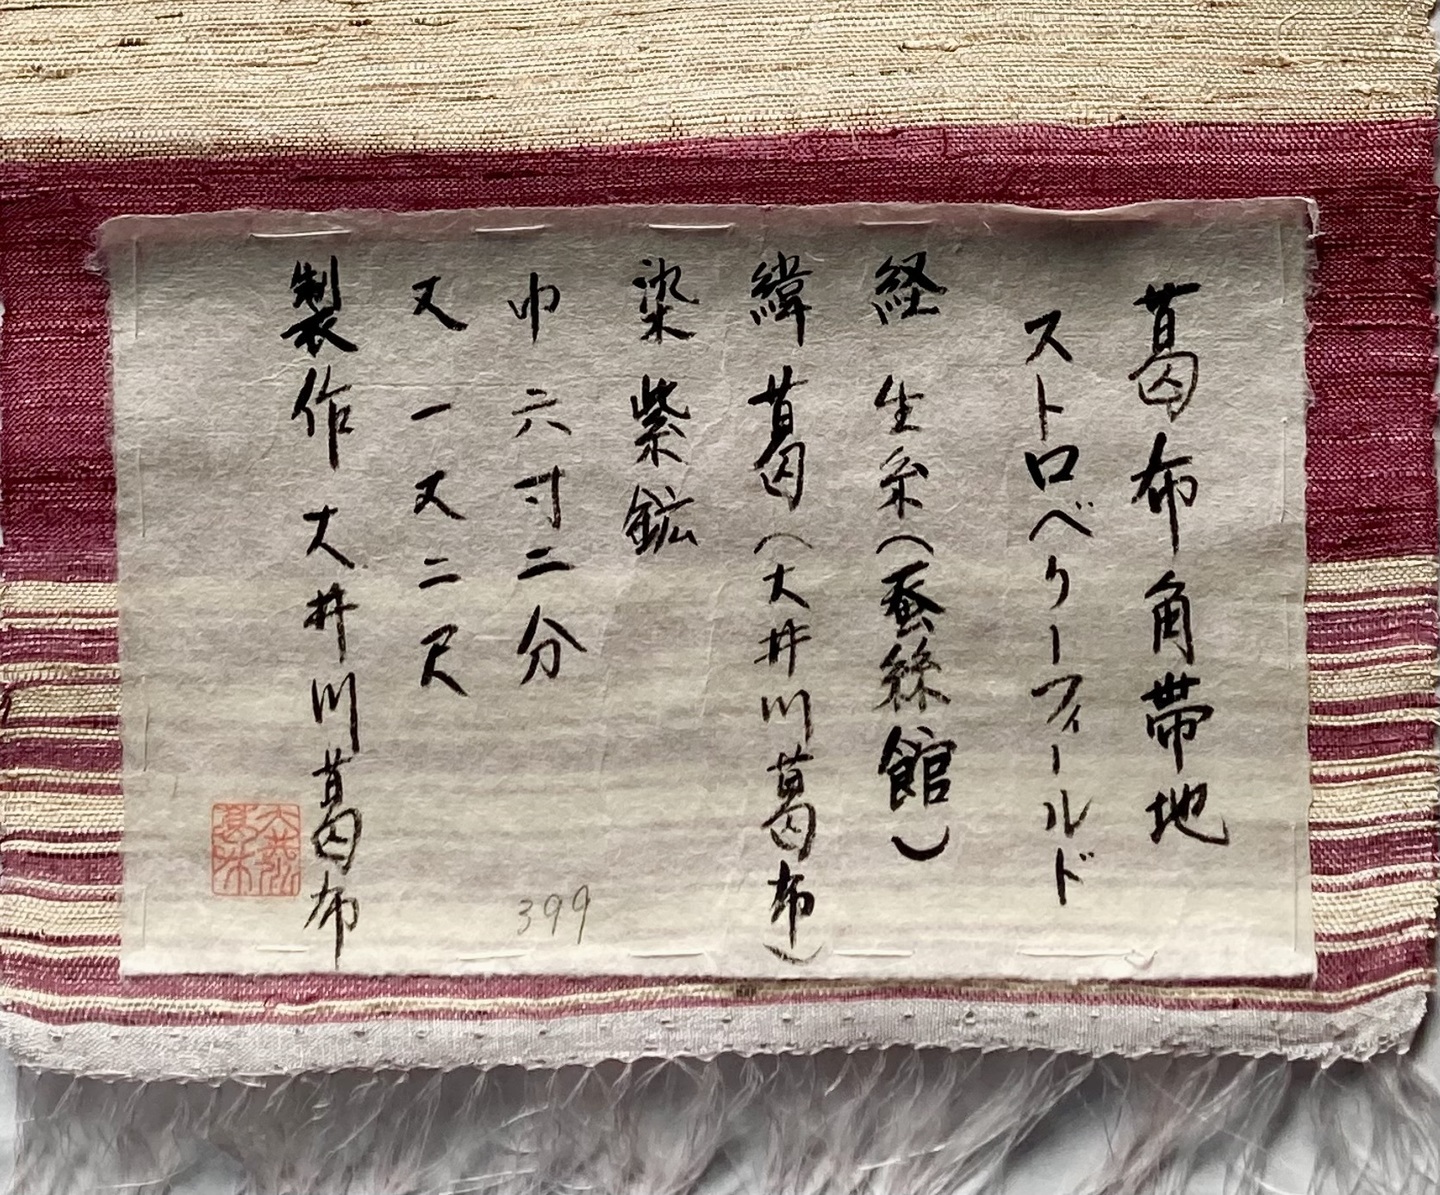 葛布角帯地
ストロベリーフィールド
経 生糸(蚕絲館)
緯 葛(大井川葛布)
染 紫鉱
巾 六寸二分
丈 一丈二尺
製作 大井川葛布
399